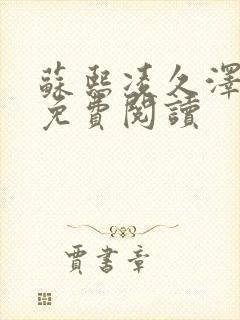 蘇熙凌久澤
免費閱讀
賈書章